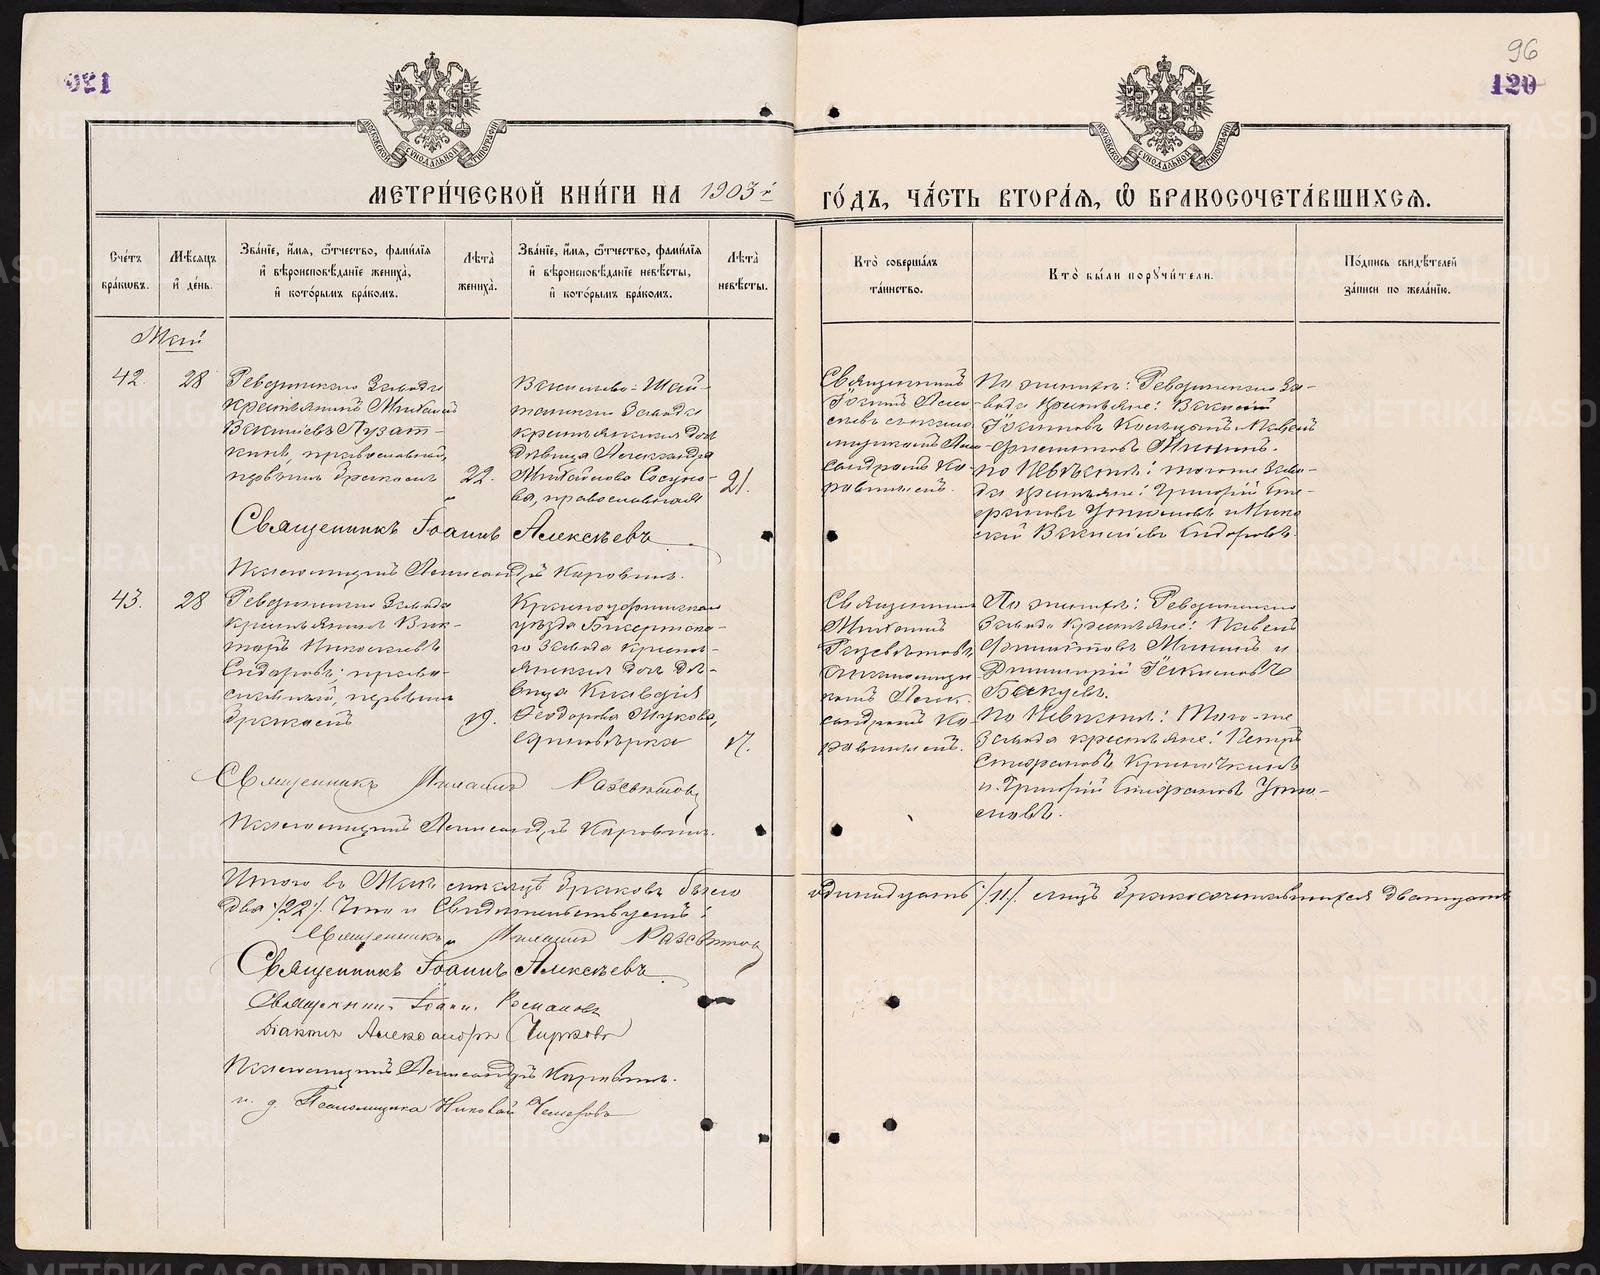 96
120
МОСКОВСКОЙ СѴНОДАЛЬНОЙ ТИПОГРАФІИ
МОСКОВСКОЙ СѴНОДАЛЬНОЙ ТИПОГРАФІИ
МЕТРИ́ЧЕСКОЙ КНИ́ГИ НА 1903 й
ГО́ДЪ, ЧА́СТЬ ВТОРА́Я, Ѽ БРАКОСОЧЕТА́ВШИХСЯ.
Сче́тъ бра́кωвъ.
Мѣ́сяцъ и҆ де́нь.
Зва́нїе, и҆́мя, ѻ҆́тчество, фами́лїя и҆ вѣроисповѣ́данїе жениха̀, и҆ кото́рымъ бра́комъ.
Лѣ́та̀ жениха̀.
Зва́нїе, и҆́мя, ѻ҆́тчество, фами́лїя и҆ вѣроисповѣ́данїе невѣ́сты, и҆ кото́рымъ бра́комъ.
Лѣ́та̀ невѣ́сты.
Кто̀ соверша́лъ та́инство.
Кто̀ бы́ли порꙋчи́тели.
По́дпись свидѣ́телей за́писи по жела́нїю.
Май
42.
28
Ревдинскаго Завода
крестьянинъ Михаилъ
Василіевъ Пузат-
кинъ, православный,
первымъ бракомъ
22.
Васильево-Шай-
танскаго Завода
крестьянская дочь
дѣвица Александра
Михайлова Сосуно-
ва, православная
21.
Священникъ
Іоаннъ Алек-
сѣевъ съ псало-
мщикомъ Але-
ксандромъ Ка-
ровинымъ.
По женихѣ: Ревдинскаго За-
вода крестьяне: Василій
Іоакимовъ и Павелъ
Филипповъ Мининъ.
по Невѣстѣ: того же Заво-
да крестьяне: Григорій Сте-
фановъ и Нико-
лай Василіевъ Сидоровъ.
Священникъ Іоаннъ Алексѣевъ
Псаломщикъ Александръ Каровинъ.
43.
28
Ревдинскаго Завода
крестьянинъ Вик-
торъ Николаевъ
Сидоровъ, право-
славный, первымъ
бракомъ
19.
Красноуфимскаго
уѣзда Бисертска-
го Завода кресть-
янская дочь дѣ-
вица Клавдія
Ѳеодорова Жукова,
единовѣрка
17.
Священникъ
Михаилъ
Разсвѣтовъ
съ псаломщи-
комъ Алек-
сандромъ Ка-
ровинымъ.
По женихѣ: Ревдинскаго
Завода крестьяне: Павелъ
Филипповъ Мининъ и
Димитрій Іоакимовъ
По Невѣстѣ: Того-же
Завода крестьяне: Петръ
Стефановъ
и Григорій Стефановъ
Священникъ Михаилъ Разсвѣтовъ
Псаломщикъ Александръ Каровинъ.
Итого въ Маѣ мѣсяцѣ браковъ было одинадцать /11/. лицъ бракосочетавшихся двадцать
два /22/. Что и Свидѣтельствуемъ:
Священникъ Михаилъ Разсвѣтовъ
Священникъ Іоаннъ Алексѣевъ
Священникъ Іоаннъ Романовъ
Діаконъ Александръ Чирковъ
Псаломщикъ Александръ Каровинъ.
и. д. Псаломщика Николай